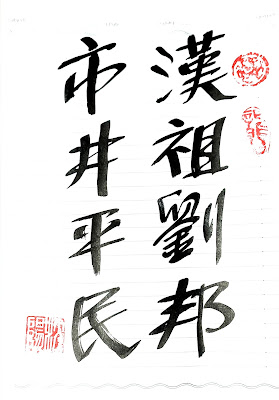 漢祖劉邦
市井平民